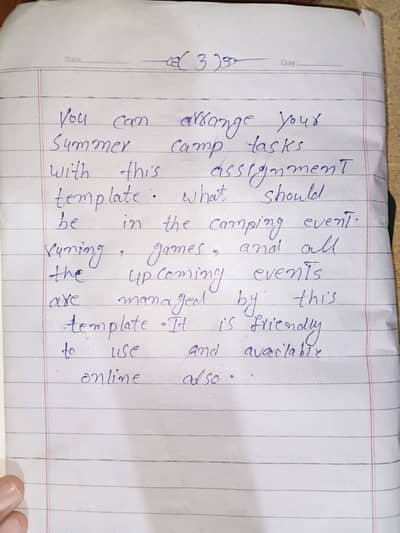 (3)
You can arrange your
Summer camp tasks
with this assignment
template. what should
be in the camping event.
runing, games, and all
the upcoming events
are managed by this
template. It is friendly
to use and available
online also.